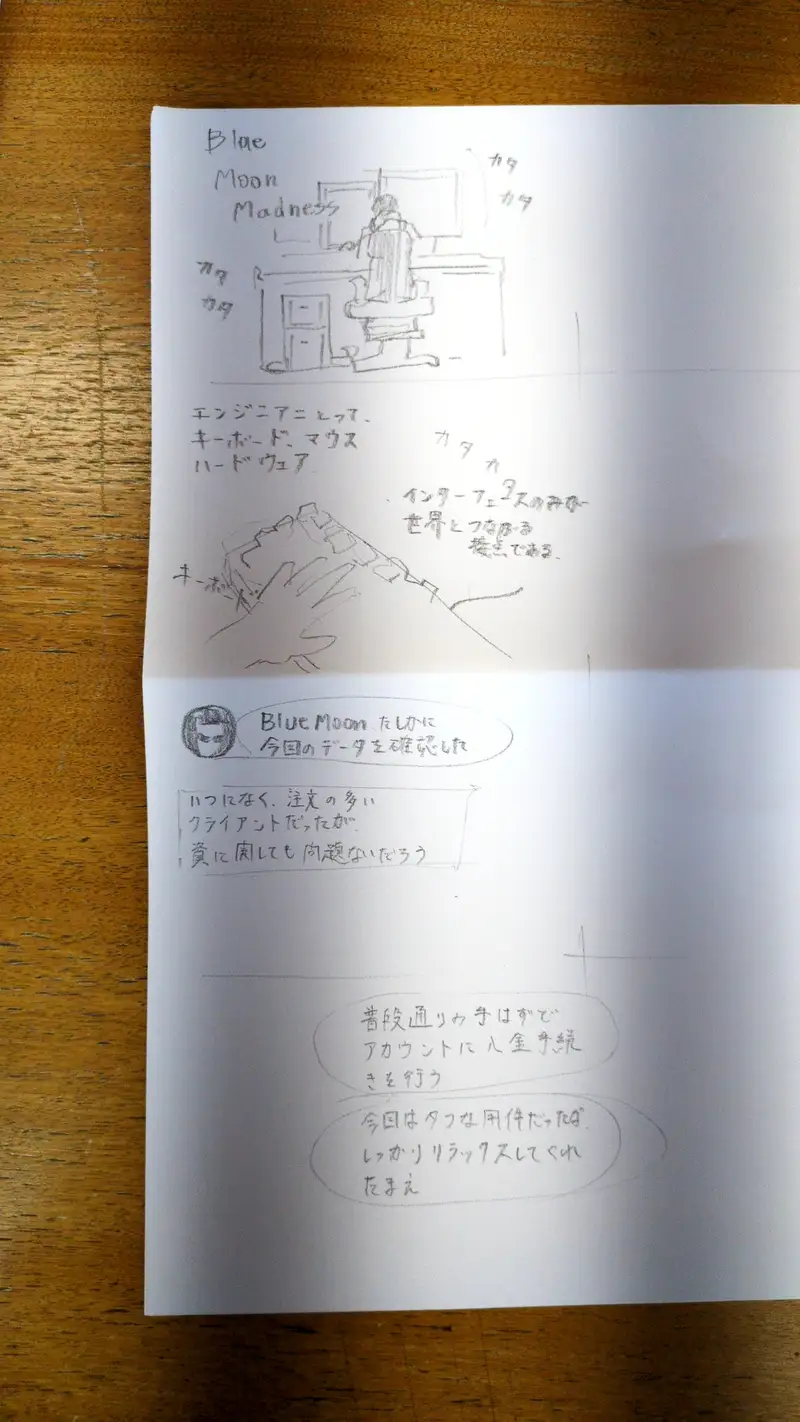 Blue
Moon
Madness
カタ
カタ
カタ
カタ
エンジニアにとって、
キーボード、マウス
ハードウェア
カタカ
インターフェースのみが
世界とつながる
接点である。
キーボード
Blue Moon たしかに
今回のデータを確認した
いつになく、注文の多い
クライアントだったが、
質に関しても問題ないだろう
普段通りの手はずで
アカウントに入金手続
きを行う
今回はタフな用件だったが、
しっかりリラックスしてくれ
たまえ